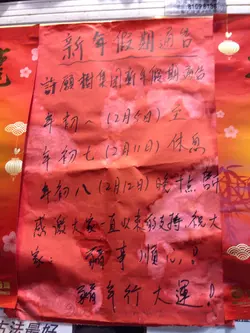 新年假期通告
許願樹集團新年假期通告
年初一 (2月5日) 至
年初七 (2月11日) 休息
年初八 (2月12日)
感激大家一直以來的支持,祝大
家: 豬事順心!
豬年行大運!